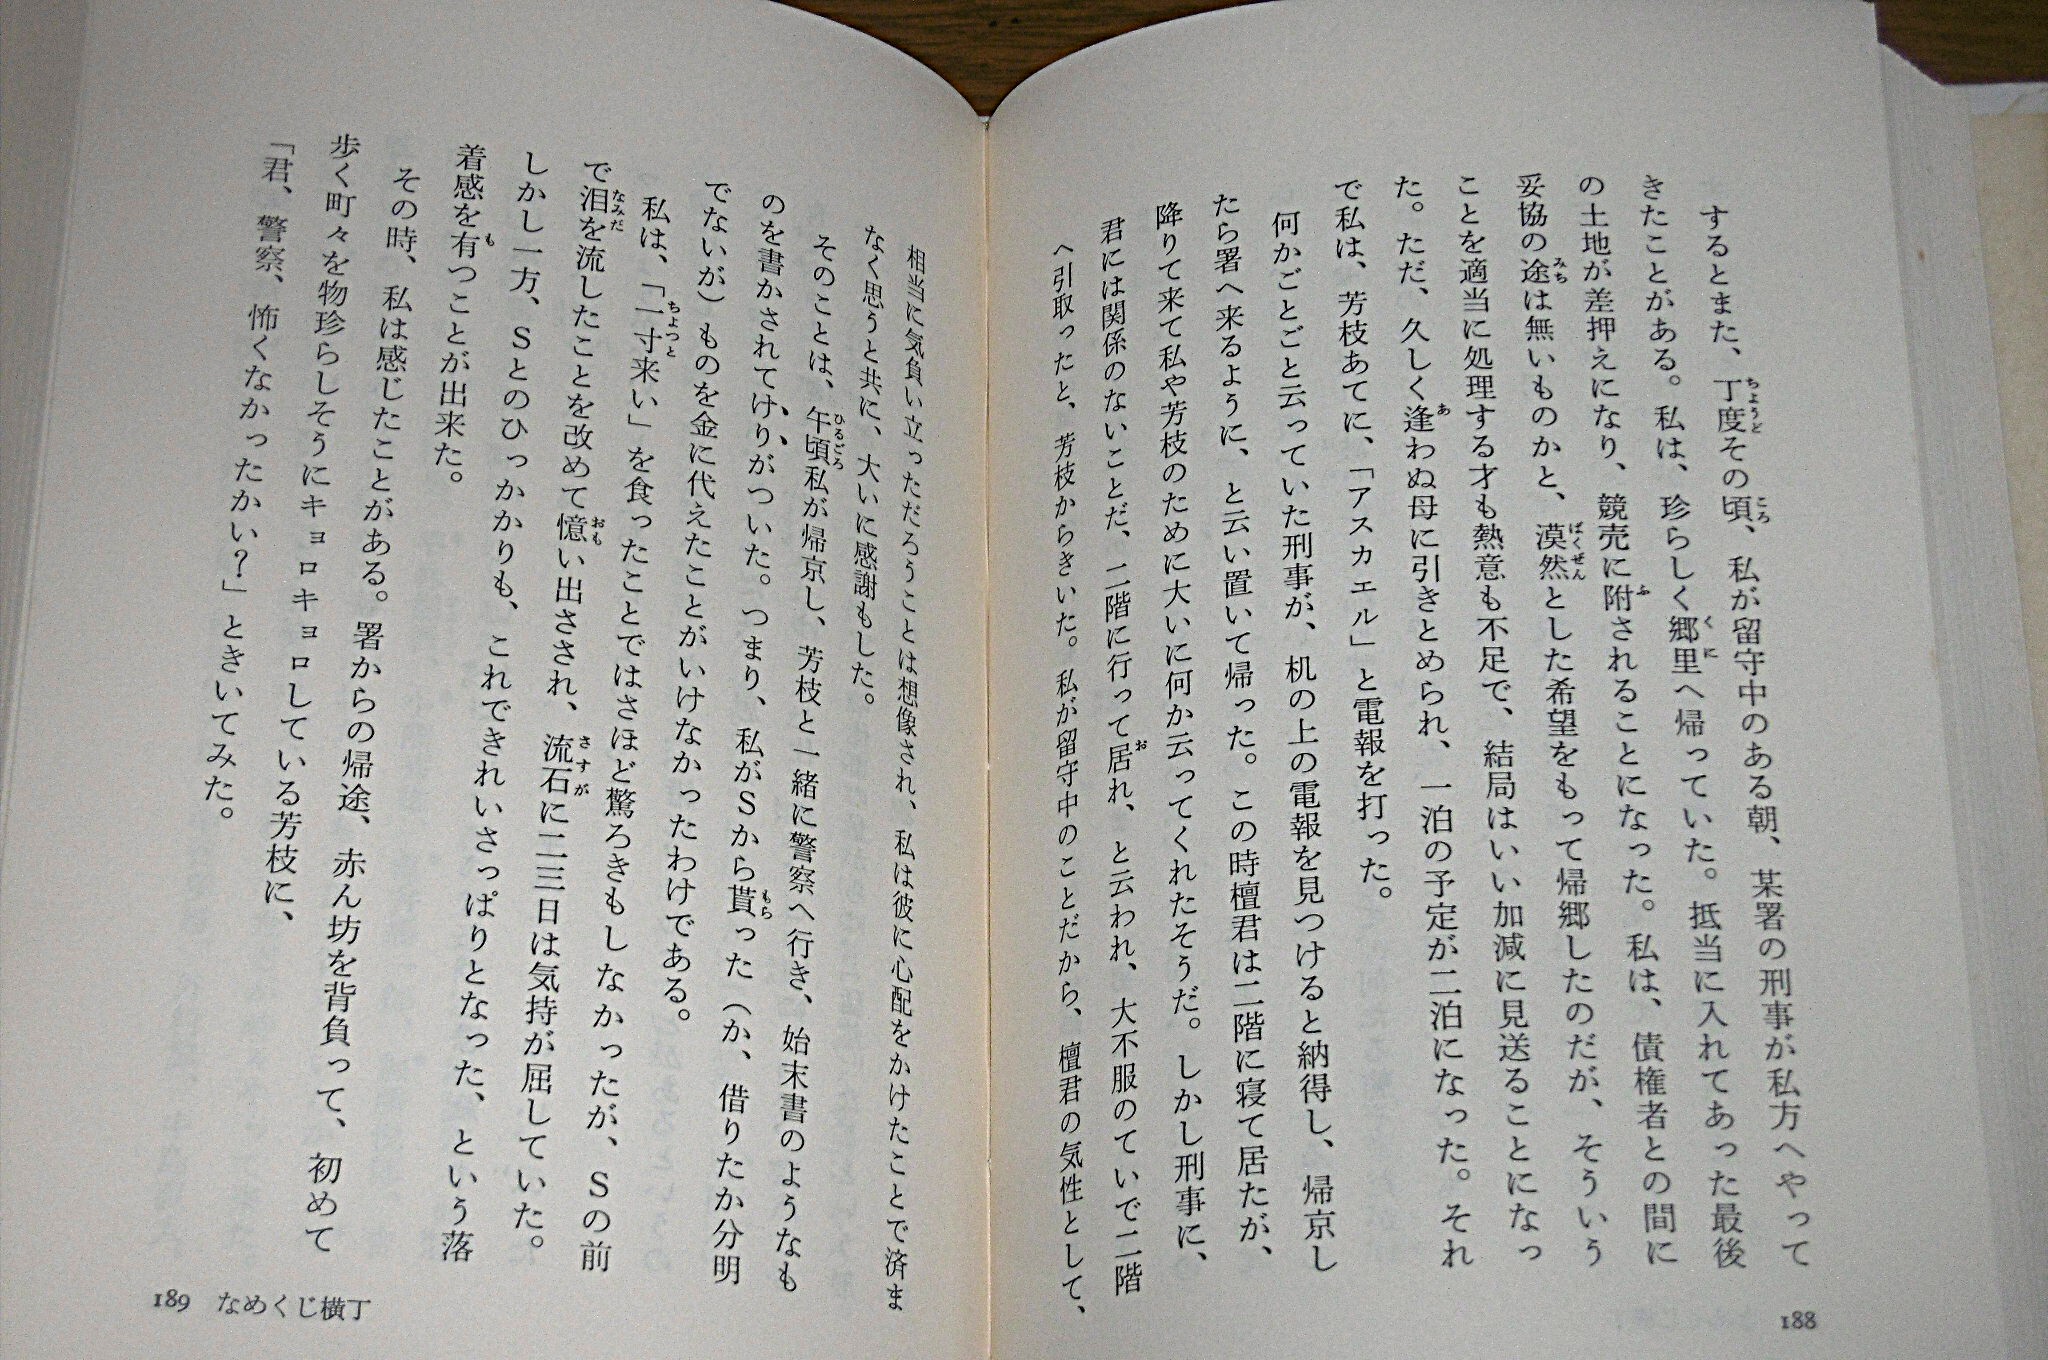 するとまた、丁度その頃、私が留守中のある朝、某署の刑事が私方へやって
きたことがある。私は、珍らしく郷里へ帰っていた。抵当に入れてあった最後
の土地が差押えになり、競売に附されることになった。私は、債権者との間に
妥協の途は無いものかと、漠然とした希望をもって帰郷したのだが、そういう
ことを適当に処理する才も熱意も不足で、結局はいい加減に見送ることになっ
た。ただ、久しく逢わぬ母に引きとめられ、一泊の予定が二泊になった。それ
で私は、芳枝あてに、「アスカエル」と電報を打った。
何かごとごと云っていた刑事が、机の上の電報を見つけると納得し、帰京し
たら署へ来るように、と云い置いて帰った。この時檀君は二階に寝て居たが、
降りて来て私や芳枝のために大いに何か云ってくれたそうだ。しかし刑事に、
君には関係のないことだ、二階に行って居れ、と云われ、大不服のていで二階
へ引取ったと、芳枝からきいた。私が留守中のことだから、檀君の気性として、
188
相当に気負い立っただろうことは想像され、私は彼に心配をかけたことで済ま
なく思うと共に、大いに感謝もした。
そのことは、午頃私が帰京し、芳枝と一緒に警察へ行き、始末書のようなも
のを書かされてけりがついた。つまり、私がSから貰った（か、借りたか分明
でないが）ものを金に代えたことがいけなかったわけである。
私は、「一寸来い」を食ったことではさほど驚ろきもしなかったが、Sの前
で泪を流したことを改めて憶い出され、流石に二三日は気持が屈していた。
しかし一方、Sとのひっかかりも、これできれいさっぱりとなった、という落
着感を有つことが出来た。
その時、私は感じたことがある。署からの帰途、赤ん坊を背負って、初めて
歩く町々を物珍らしそうにキョロキョロしている芳枝に、
「君、警察、怖くなかったかい？」ときいてみた。
189 なめくじ横丁